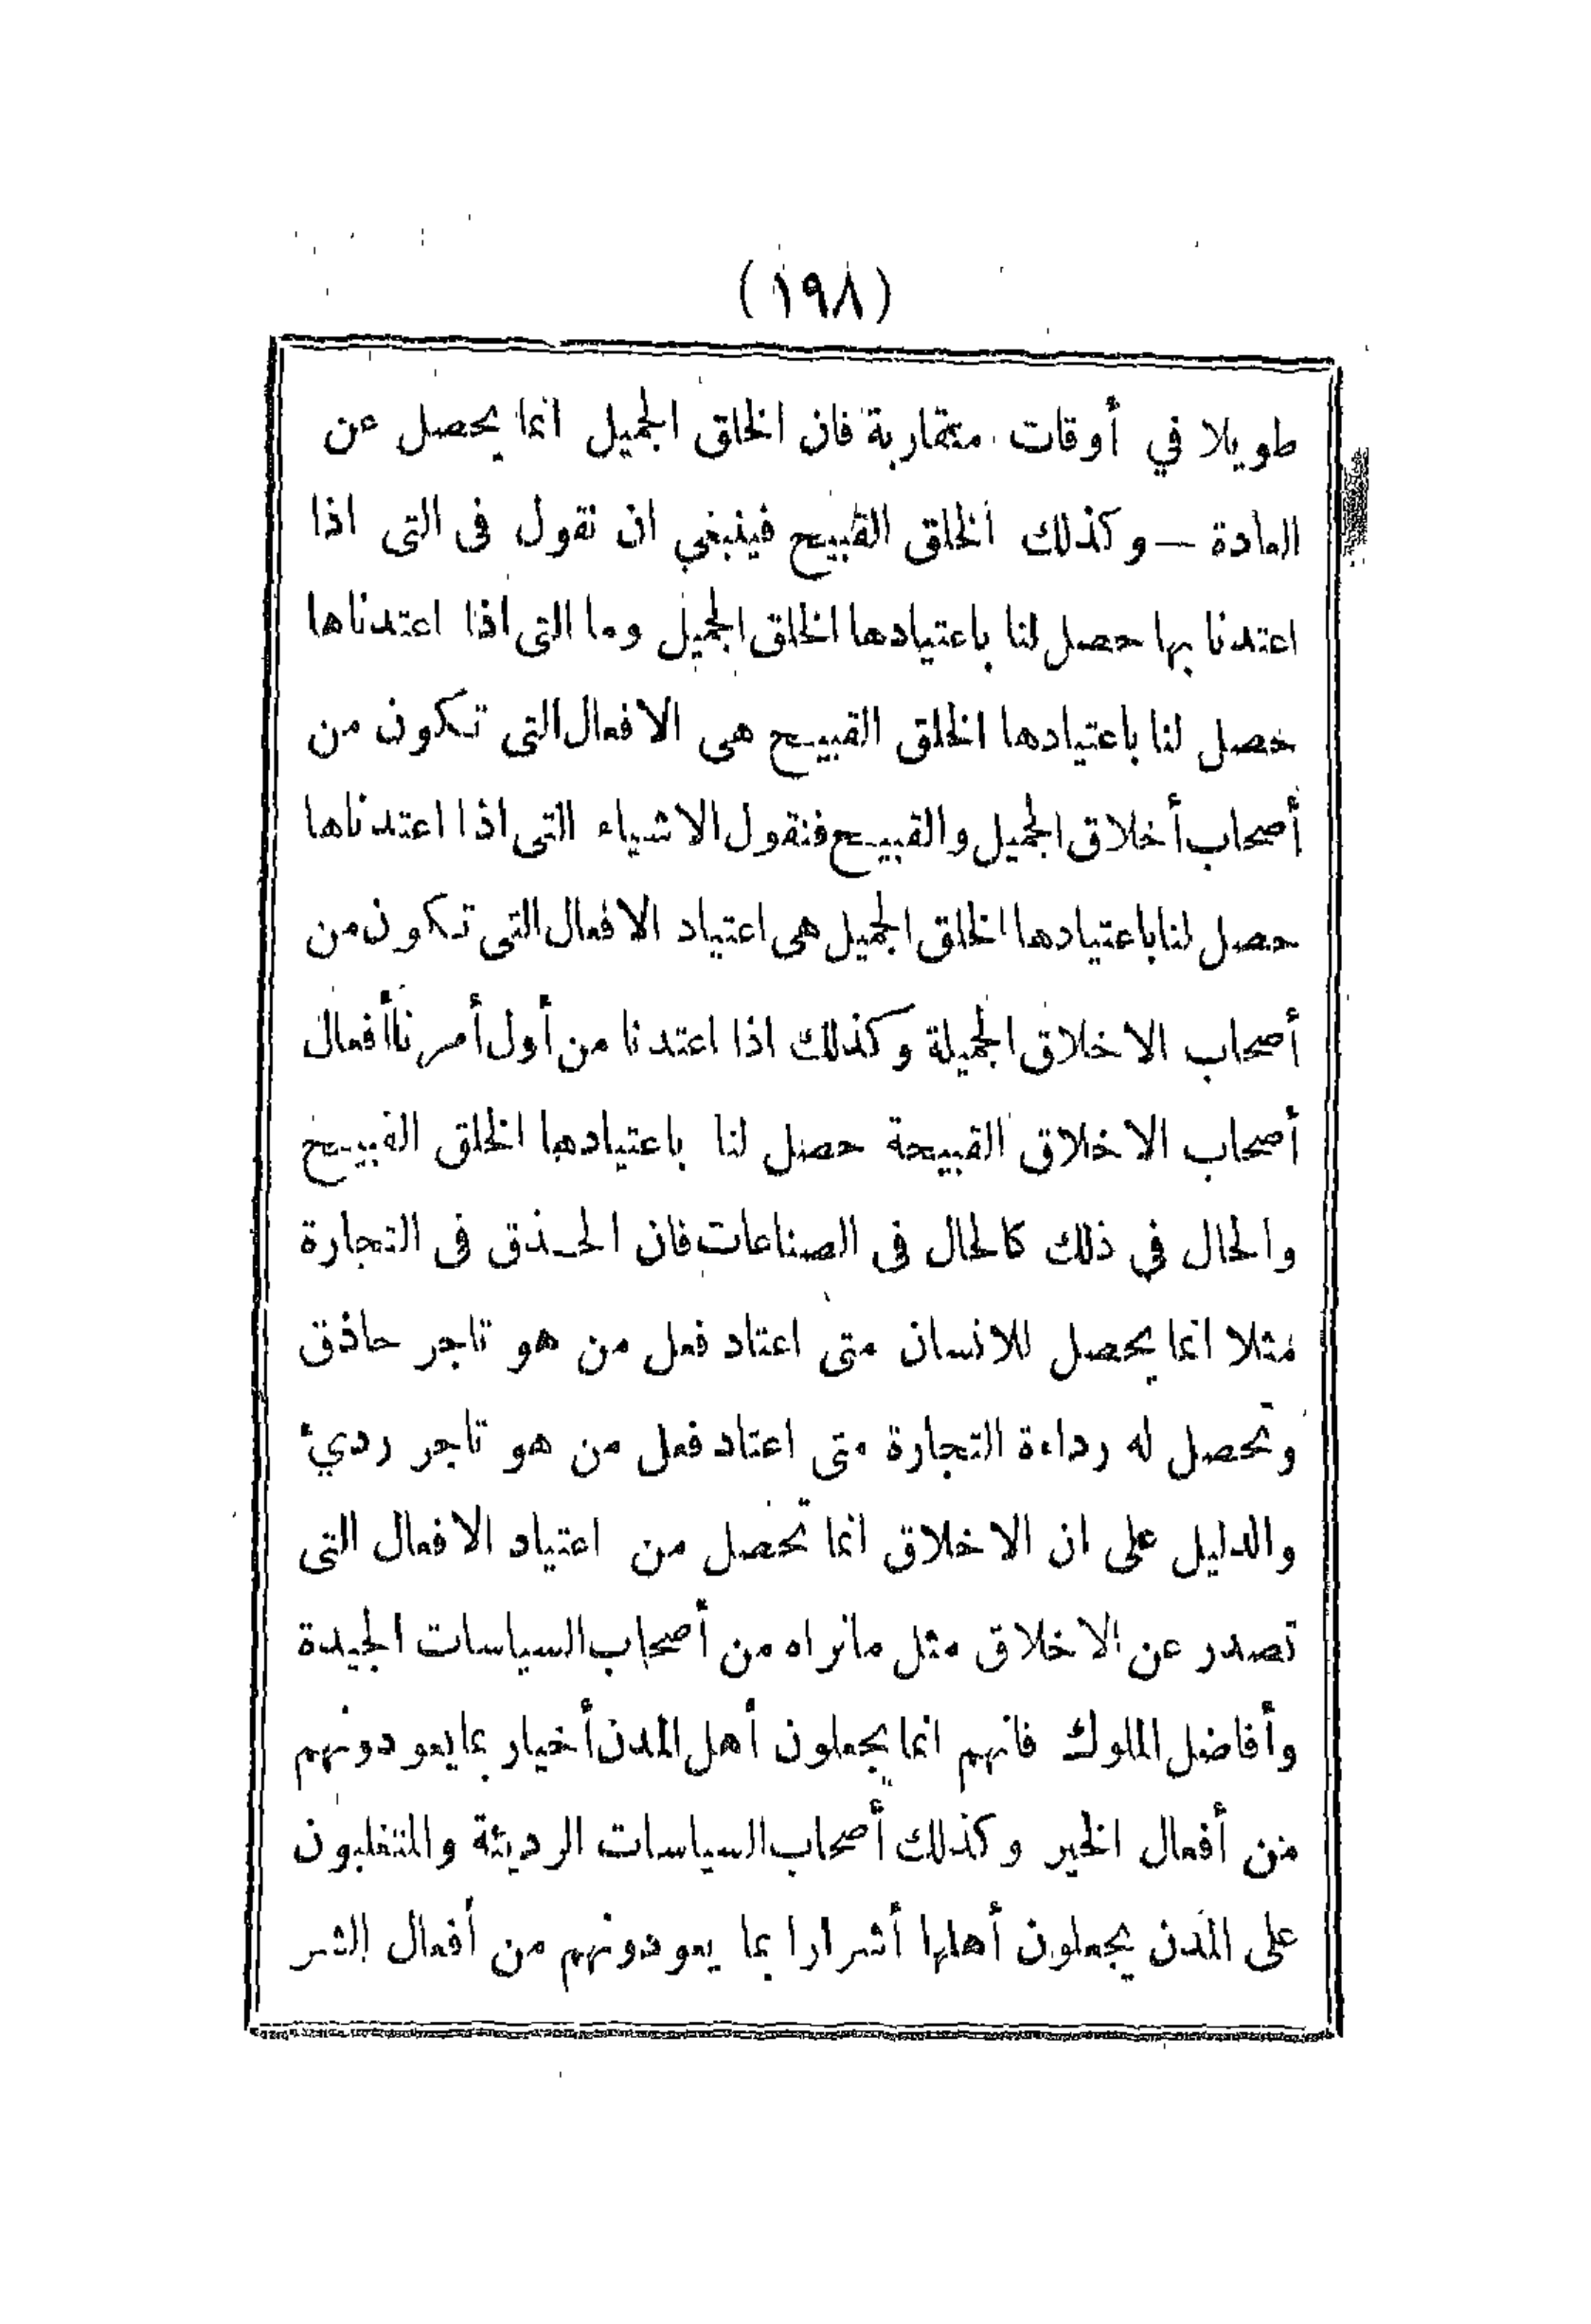 (١٩٨)
طويلا في أوقات متقاربة فان الخلق الجميل انما يحصل عن
العادة — وكذلك الخلق القبيح فينبغي ان نقول فى التى اذا
اعتدنا بها حصل لنا باعتيادها الخلق الجميل وما التى اذا اعتدناها
حصل لنا باعتيادها الخلق القبيح هى الافعال التى تكون من
أصحاب أخلاق الجميل والقبيح فنقول الاشياء التى اذا اعتدناها
حصل لنا باعتيادها الخلق الجميل هى اعتياد الافعال التى تكون من
أصحاب الاخلاق الجميلة وكذلك اذا اعتدنا من أول أمرنا أفعال
أصحاب الاخلاق القبيحة حصل لنا باعتيادها الخلق القبيح
والحال في ذلك كالحال فى الصناعات فان الحذق فى التجارة
مثلا انما يحصل للانسان متى اعتاد فعل من هو تاجر حاذق
وتحصل له رداءة التجارة متى اعتاد فعل من هو تاجر رديء
والدليل على ان الاخلاق انما تحصل من اعتياد الافعال التى
تصدر عن الاخلاق مثل مانراه من أصحاب السياسات الجيدة
وأفاضل الملوك فانهم انما يجعلون أهل المدن أخيار بما يعودونهم
من أفعال الخير وكذلك أصحاب السياسات الرديئة والمتغلبون
على المدن يجعلون أهلها أشرارا بما يعودونهم من أفعال الشر